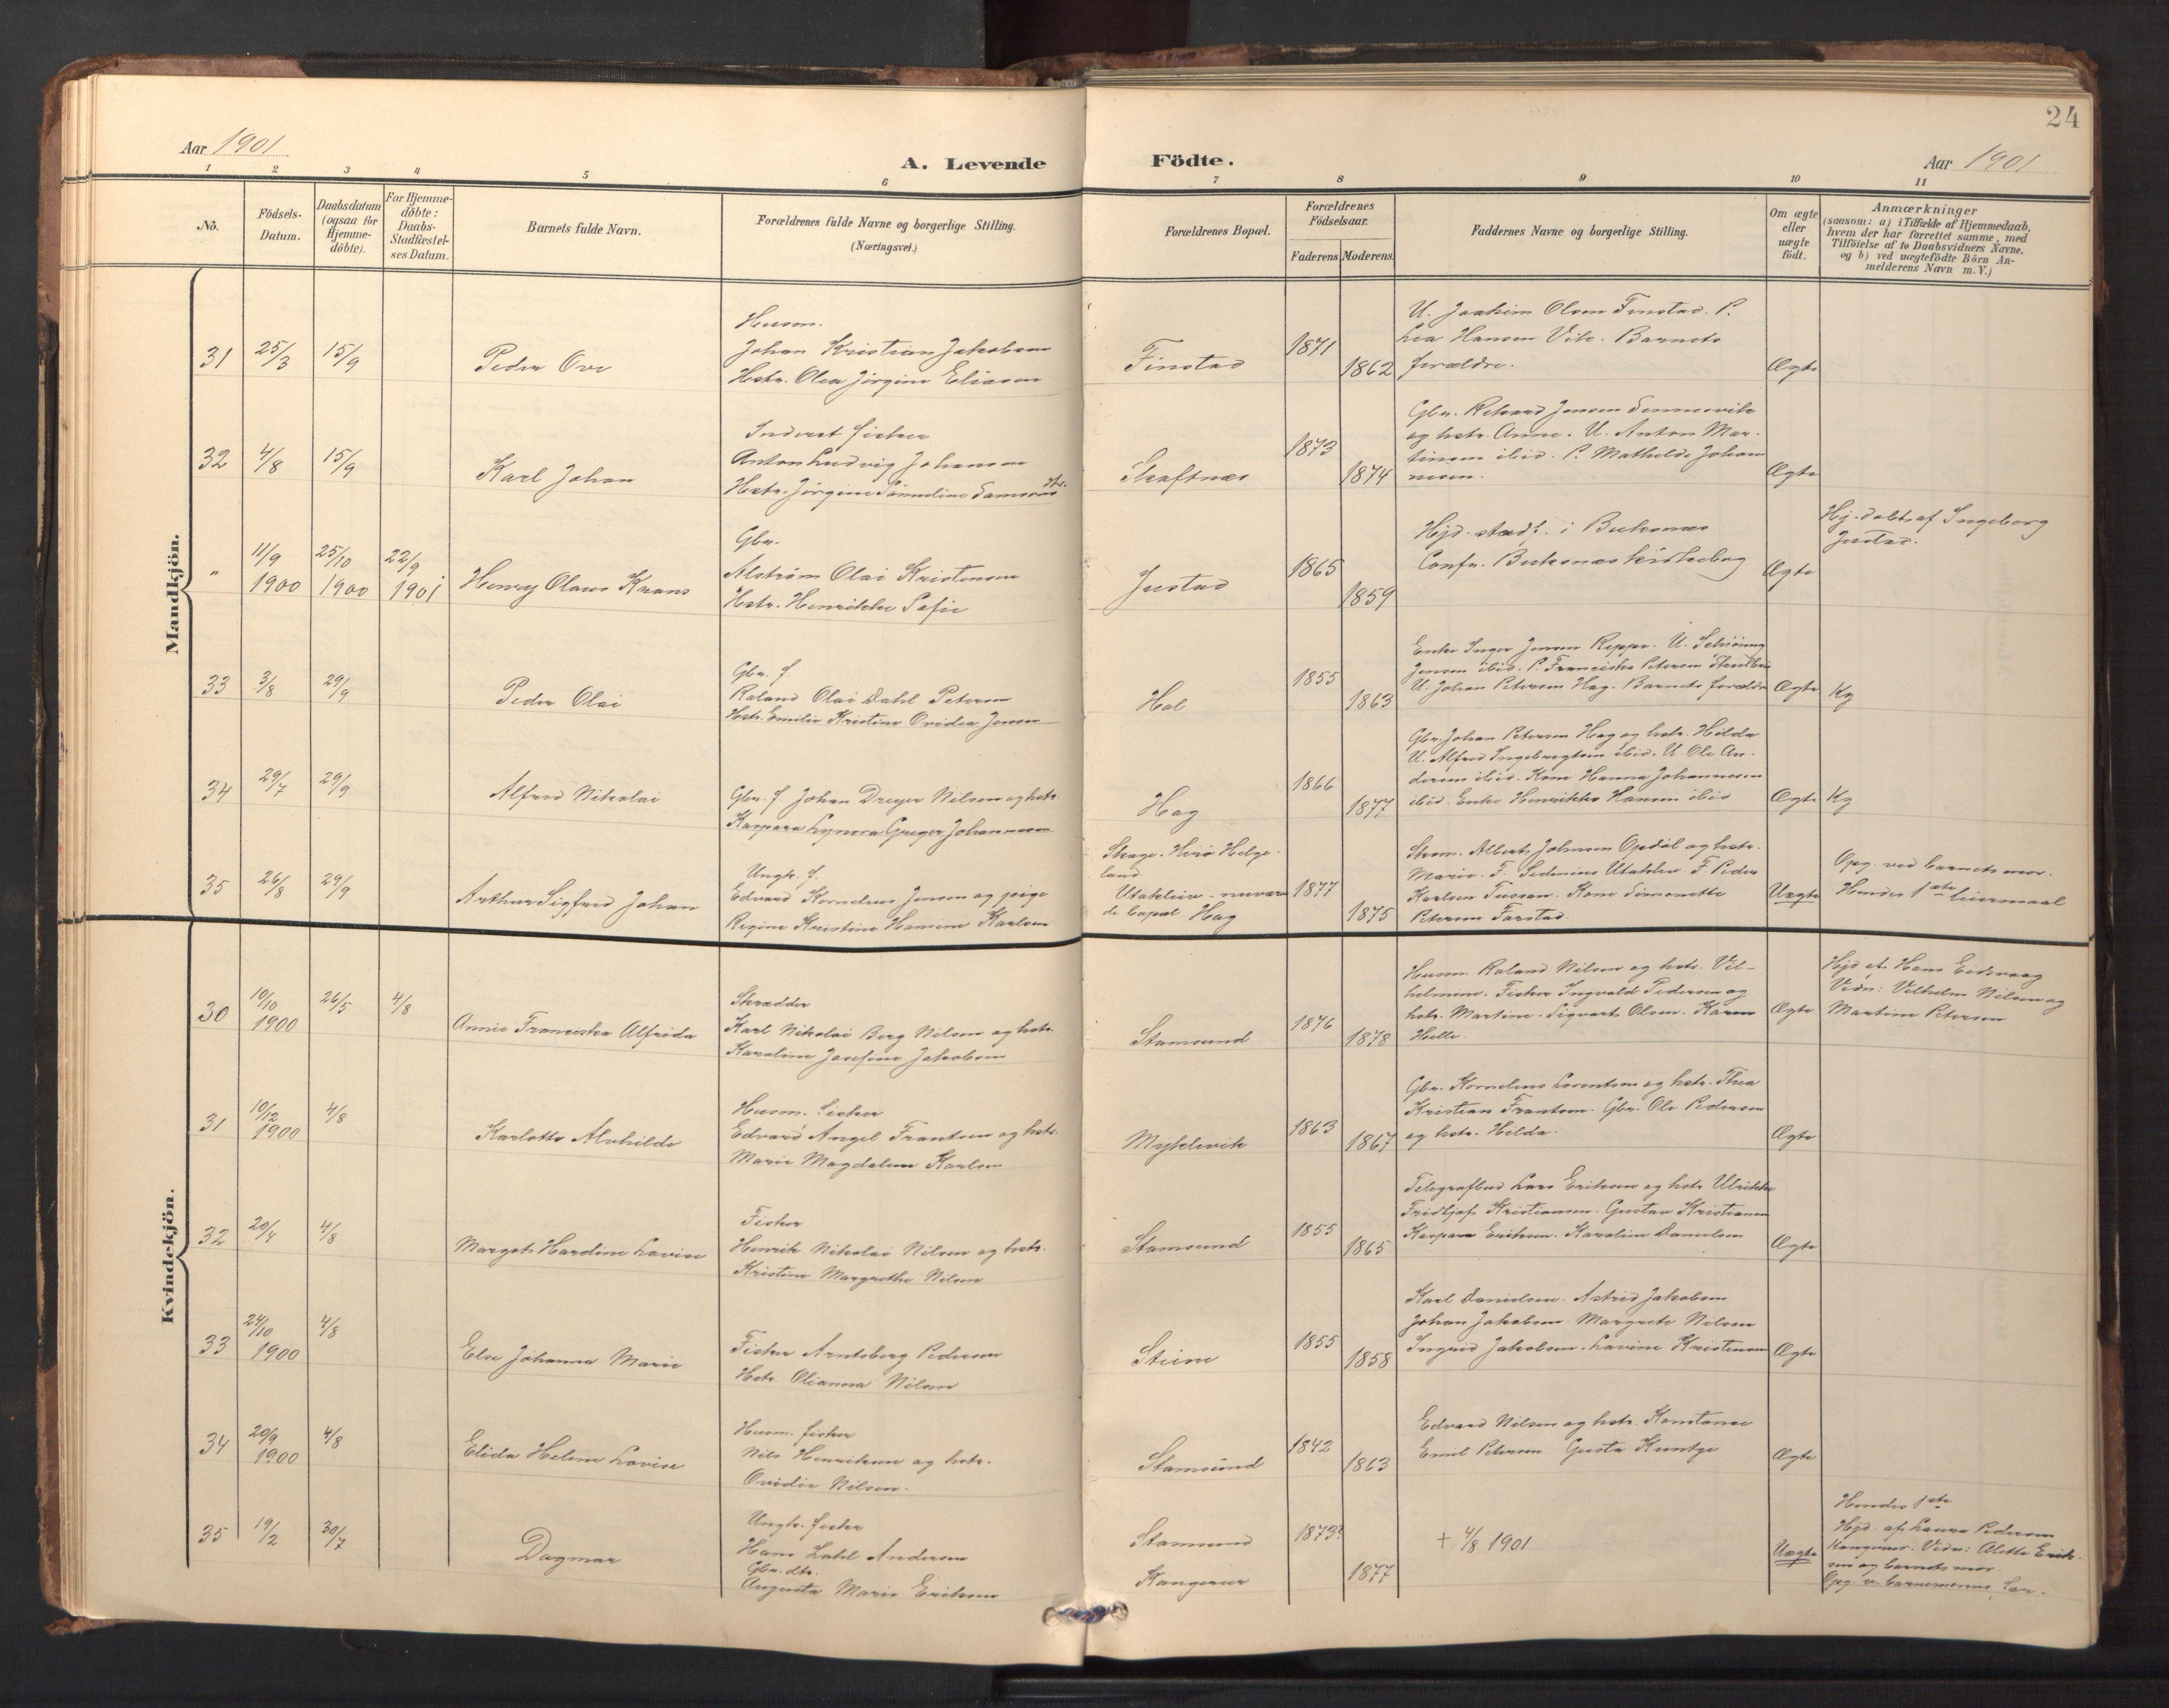 24
Aar 1901
A. Levende
Födte.
Aar 1901
1 2 3 4 5 6 7 8 9 10 11
No.
Födsels-
Datum.
Daabsdatum
(ogsaa for
Hjemme-
döbte).
For Hjemme-
döbte:
Daabs-
Stadfæstel-
ses Datum.
Barnets fulde Navn.
Forældrenes fulde Navne og borgerlige Stilling.
(Næringsvei.)
Forældrenes Bopæl.
Forældrenes
Födselsaar.
Faderens Moderens
Faddernes Navne og borgerlige Stilling.
Om ægte
eller
uægte
födt.
Anmærkninger
(saasom: a) i Tilfælde af Hjemmedaab,
hvem der har forrettet samme, med
Tilföielse af to Daabsvidners Navne,
og b) ved uægtefödte Börn An-
melderens Navn m. V.)
Mandkjön.
31
25/3
15/9
Peder Ove
Husm.
Johan Kristian Jakobsen
Hstr. Olea Jørgine Eliasen
Finstad
1871
1862
U. Joakim Olsen Finstad. P.
Lea Hansen Vik. Barnets
forældre.
Ægte
32
4/8
15/9
Karl Johan
Inderst fisker
Anton Ludvig Johansen
Hstr. Jørgine
1873
1874
Gbr. Rikard Jensen
og hstr. Anne. U. Anton Mar-
tinsen ibid. P. Mathilde Johan
nesen.
Ægte
"
11/9
1900
25/10
1900
22/9
1901
Henry Olaus Krans
Gbr.
Alstrøm Olai Kristensen
Hstr. Henrikke Sofie
Justad
1865
1859
Hjd. stadf. i Buksnæs
Confr. Buksnæs kirkebog
Ægte
Hj.døbt af Ingeborg
Justad.
33
3/8
29/9
Peder Olai
Gbr. f
Roland Olai Dahl Petersen
Hstr. Emilie Kristine Ovidea Jensen
Hol
1855
1863
Enke Inger Jensen Reppe. U. Schøning
Jensen ibid. P. Franciska Petersen
U. Johan Petersen Hag. Barnets forældre
Ægte
Kg
34
29/7
29/9
Alfred Nikolai
Gbr. f. Johan Dreyer Nilsen og hstr.
Kaspara Lynora Greger Johannesen
Hag
1866
1877
Gbr. Johan Petersen Hag og hstr. Hilda
U. Alfred Ingebrigtsen ibid. U. Ole An-
dersen ibid. Kone Hanna Johannesen
ibid. Enke Henrikke Hansen ibid
Ægte
Kg
35
26/8
29/9
Arthur Sigfred Johan
Ungk. f.
Edvard Kornelius Jensen og pige
Regine Kristine Hansine Karlsen
Helge-
land
Utakleiv - nuværen
de bopæl Hag
1877
1875
Strm. Albert Johnsen Opdøl og hstr.
Marie. F. Sedenius Utakleiv F. Peder
Karlsen Tussan. Kone Simonette
Petersen Farstad.
Uægte
Opg. ved barnets mor.
Hendes 1ste leiermaal
Kvindekjön.
30
10/10
1900
26/5
4/8
Annie Franciska Alfrida
Skrædder
Karl Nikolai Berg Nilsen og hstr.
Karoline Josefine Jakobsen
Stamsund
1876
1878
Husm. Roland Nilsen og hstr. Vil-
helmine. Fisker Ingvald Pedersen og
hstr. Martine. Sigvart Olsen. Karen
Helle.
Ægte
Hjd af Hans Eidsvaag
Vidn: Vilhelm Nilsen og
Martine Petersen
31
10/12
1900
4/8
Karlotte Alvhilde
Husm. fisker
Edvard Angel Frantsen og hstr.
Marie Magdalena Karlsen
Myklevik
1863
1867
Gbr. Kornelius Lorentsen og hstr. Thea
Kristian Frantsen. Gbr. Ole Pedersen
og hstr. Hilda.
Ægte
32
20/4
4/8
Margot Hardine Lovise
Fisker
Henrik Nikolai Nilsen og hstr.
Kristine Margrethe Nilsen
Stamsund
1855
1865
Telegrafbud Lars Eriksen og hstr Ulrikke
Fridtjof Kristiansen. Gustav Kristiansen
Kaspara Eriksen. Karoline Danielsen
Ægte
33
24/10
1900
4/8
Else Johanna Marie
Fisker Arntsberg Pedersen
Hstr. Olianna Nilsen
Steine
1855
1858
Karl Danielsen. Astrid Jakobsen
Johan Jakobsen. Margrete Nilsen
Ingrid Jakobsen. Lovine Kristensen
Ægte
34
20/9
1900
4/8
Elida Helene Lovise
Husm. fisker
Nils Henriksen og hstr.
Ovidie Nilsen.
Stamsund
1842
1863
Edvard Nilsen og hstr. Konstanse
Emil Petersen. Gusta
Ægte
35
19/2
30/7
Dagmar
Ungk. fisker
Hans Dahl Andersen
Gbr. dtr.
Augusta Marie Eriksen
Stamsund
Kangerur
1873?
1877
+ 4/8 1901
Uægte
Hendes 1ste
Hjd. af Laura Pedersen
Kangerur. Vidn: Alette Erik-
sen og barnets mor
Opg. v. barnemorens far.